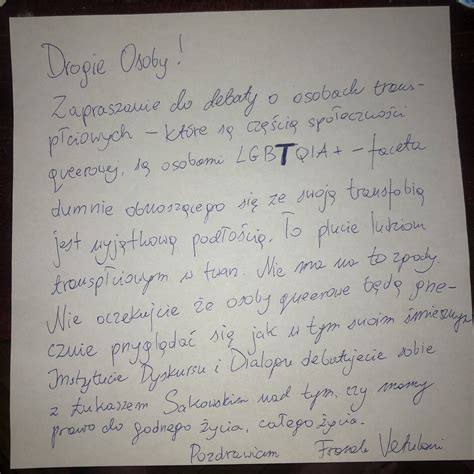 Drogie Osoby!
Zapraszanie do debaty o osobach trans-
płciowych – które są częścią społeczności
queerowej, są osobami LGBTQIA+ – faceta
dumnie obnoszącego się ze swoją transfobią
jest wyjątkową podłością. To plucie ludziom
transpłciowym w twarz. Nie ma na to zgody.
Nie oczekujcie że osoby queerowe będą grze-
cznie przyglądać się jak w tym swoim śmiesznym
Instytucie Dyskursu i Dialogu debatujecie sobie
z Łukaszem Sakowskim nad tym, czy mamy
prawo do godnego życia, całego życia.
Pozdrawiam Franek Vetulani